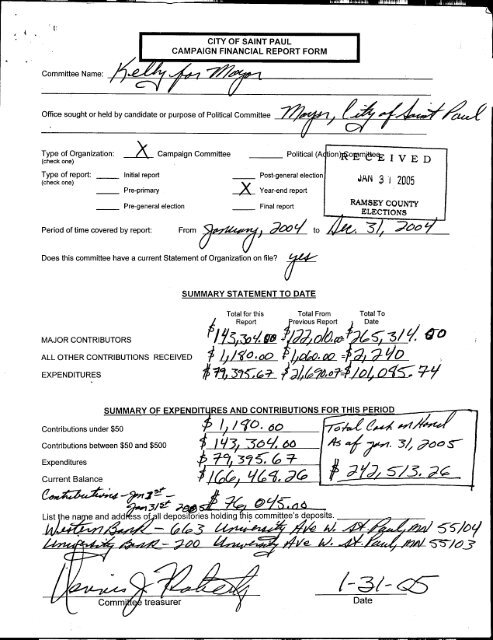 CITY OF SAINT PAUL
CAMPAIGN FINANCIAL REPORT FORM
Committee Name: Kelly for Mayor
Office sought or held by candidate or purpose of Political Committee Mayor, City of Saint Paul
Type of Organization: X Campaign Committee Political (Action) Committee
(check one)
RECEIVED
JAN 31 2005
RAMSEY COUNTY
ELECTIONS
Type of report: Initial report Post-general election
(check one)
Pre-primary X Year-end report
Pre-general election Final report
Period of time covered by report: From January, 2004 to Dec. 31, 2004
Does this committee have a current Statement of Organization on file? yes
SUMMARY STATEMENT TO DATE
Total for this Report Total From Previous Report Total To Date
MAJOR CONTRIBUTORS $143,304.00 $122,010.00 $265,314.00
ALL OTHER CONTRIBUTIONS RECEIVED $1,180.00 $1,060.00 = $2,240
EXPENDITURES $79,395.67 $21,690.07 = $101,085.74
SUMMARY OF EXPENDITURES AND CONTRIBUTIONS FOR THIS PERIOD
Contributions under $50 $1,180.00
Contributions between $50 and $500 $143,304.00
Expenditures $79,395.67
Current Balance $166,468.26
Total Cash on Hand
As of Jan. 31, 2005
$242,513.26
Contributions - Jan 1st -
Jan 31st 2005 $76,045.00
List the name and address of all depositories holding this committee's deposits.
Western Bank - 663 University Ave W. St. Paul, MN 55104
University Bank - 200 University Ave W. St. Paul, MN 55103
Committee treasurer
1-31-05
Date